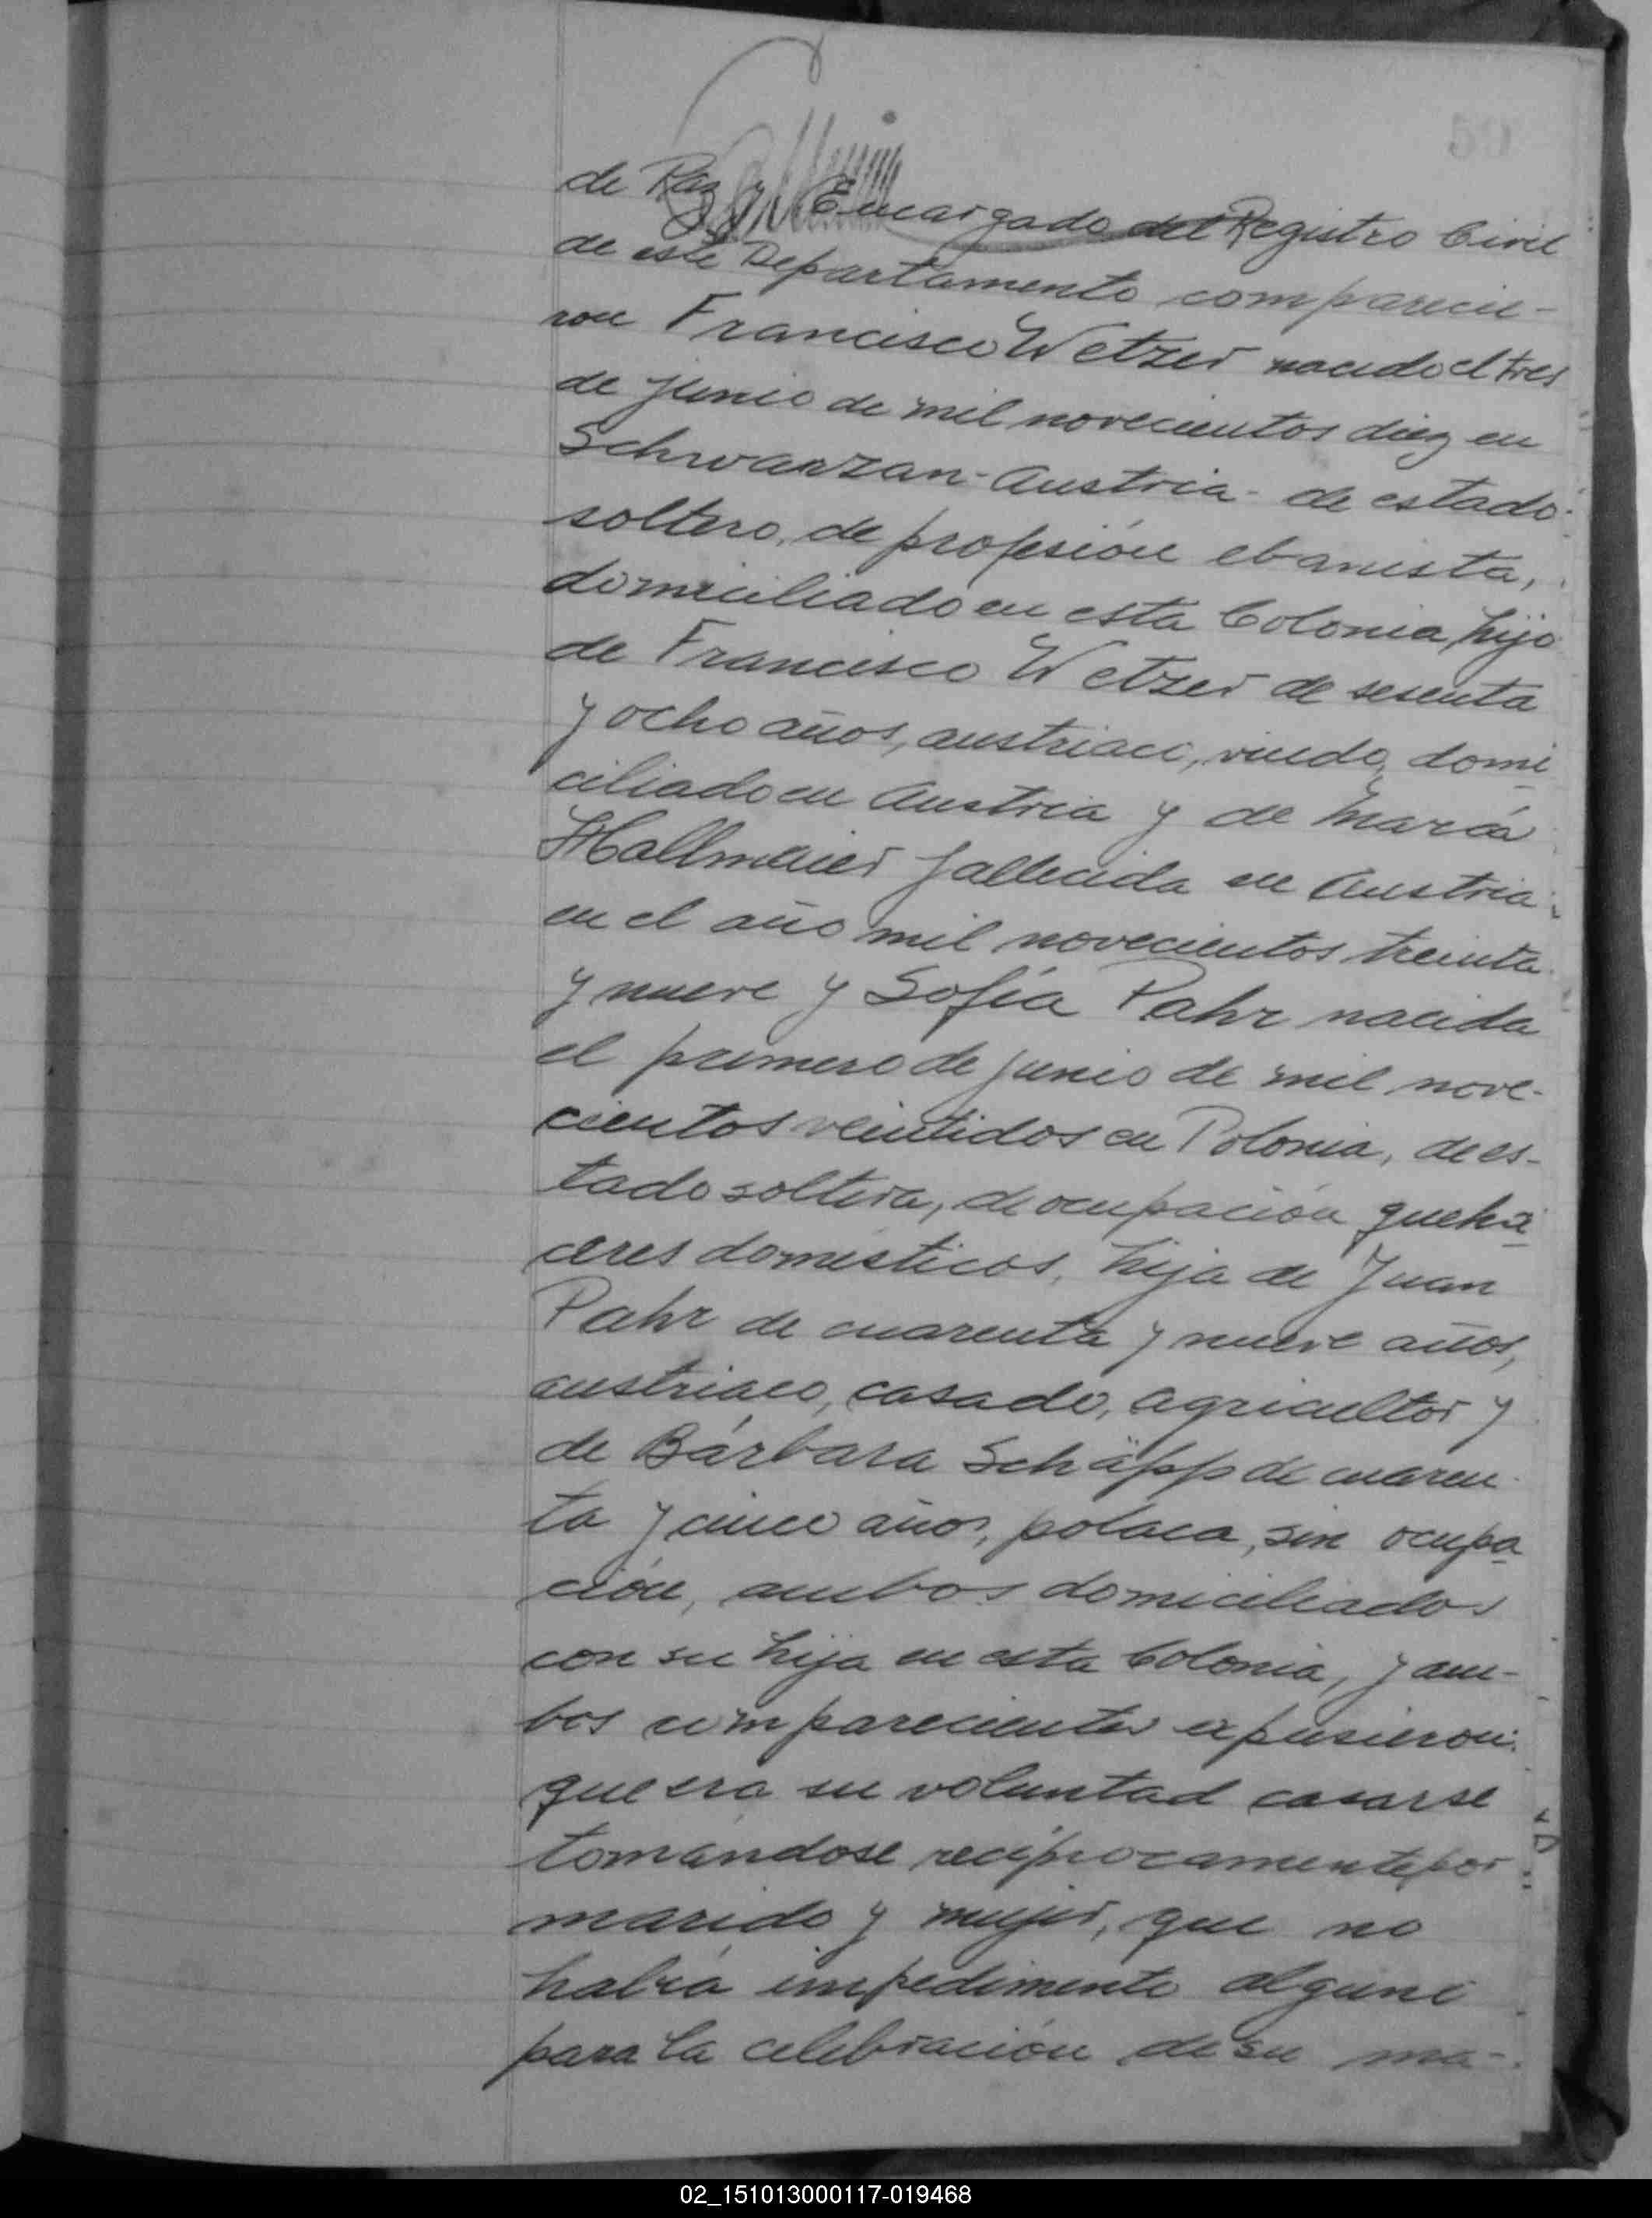 de Paz y Encargado del Registro Civil
de este Departamento comparecie-
ron Francisco Wetzer nacido el tres
de junio de mil novecientos diez en
Schwarzan - Austria - de estado
soltero, de profesión ebanista,
domiciliado en esta Colonia, hijo
de Francisco Wetzer de sesenta
y ocho años, austriaco, viudo, domi
ciliado en Austria y de María
Hallmaier fallecida en Austria
en el año mil novecientos treinta
y nueve y Sofía Pahr nacida
el primero de junio de mil nove-
cientos veintidos en Polonia, de es-
tado soltera, de ocupación queha
ceres domésticos, hija de Juan
Pahr de cuarenta y nueve años,
austriaco, casado, agricultor y
de Bárbara Schäpp de cuaren
ta y cinco años, polaca, sin ocupa
ción, ambos domiciliados
con su hija en esta Colonia, y am-
bos comparecientes expusieron:
que era su voluntad casarse
tomándose recíprocamente por
marido y mujer, que no
había impedimento alguno
para la celebración de su ma-
02_151013000117-019468